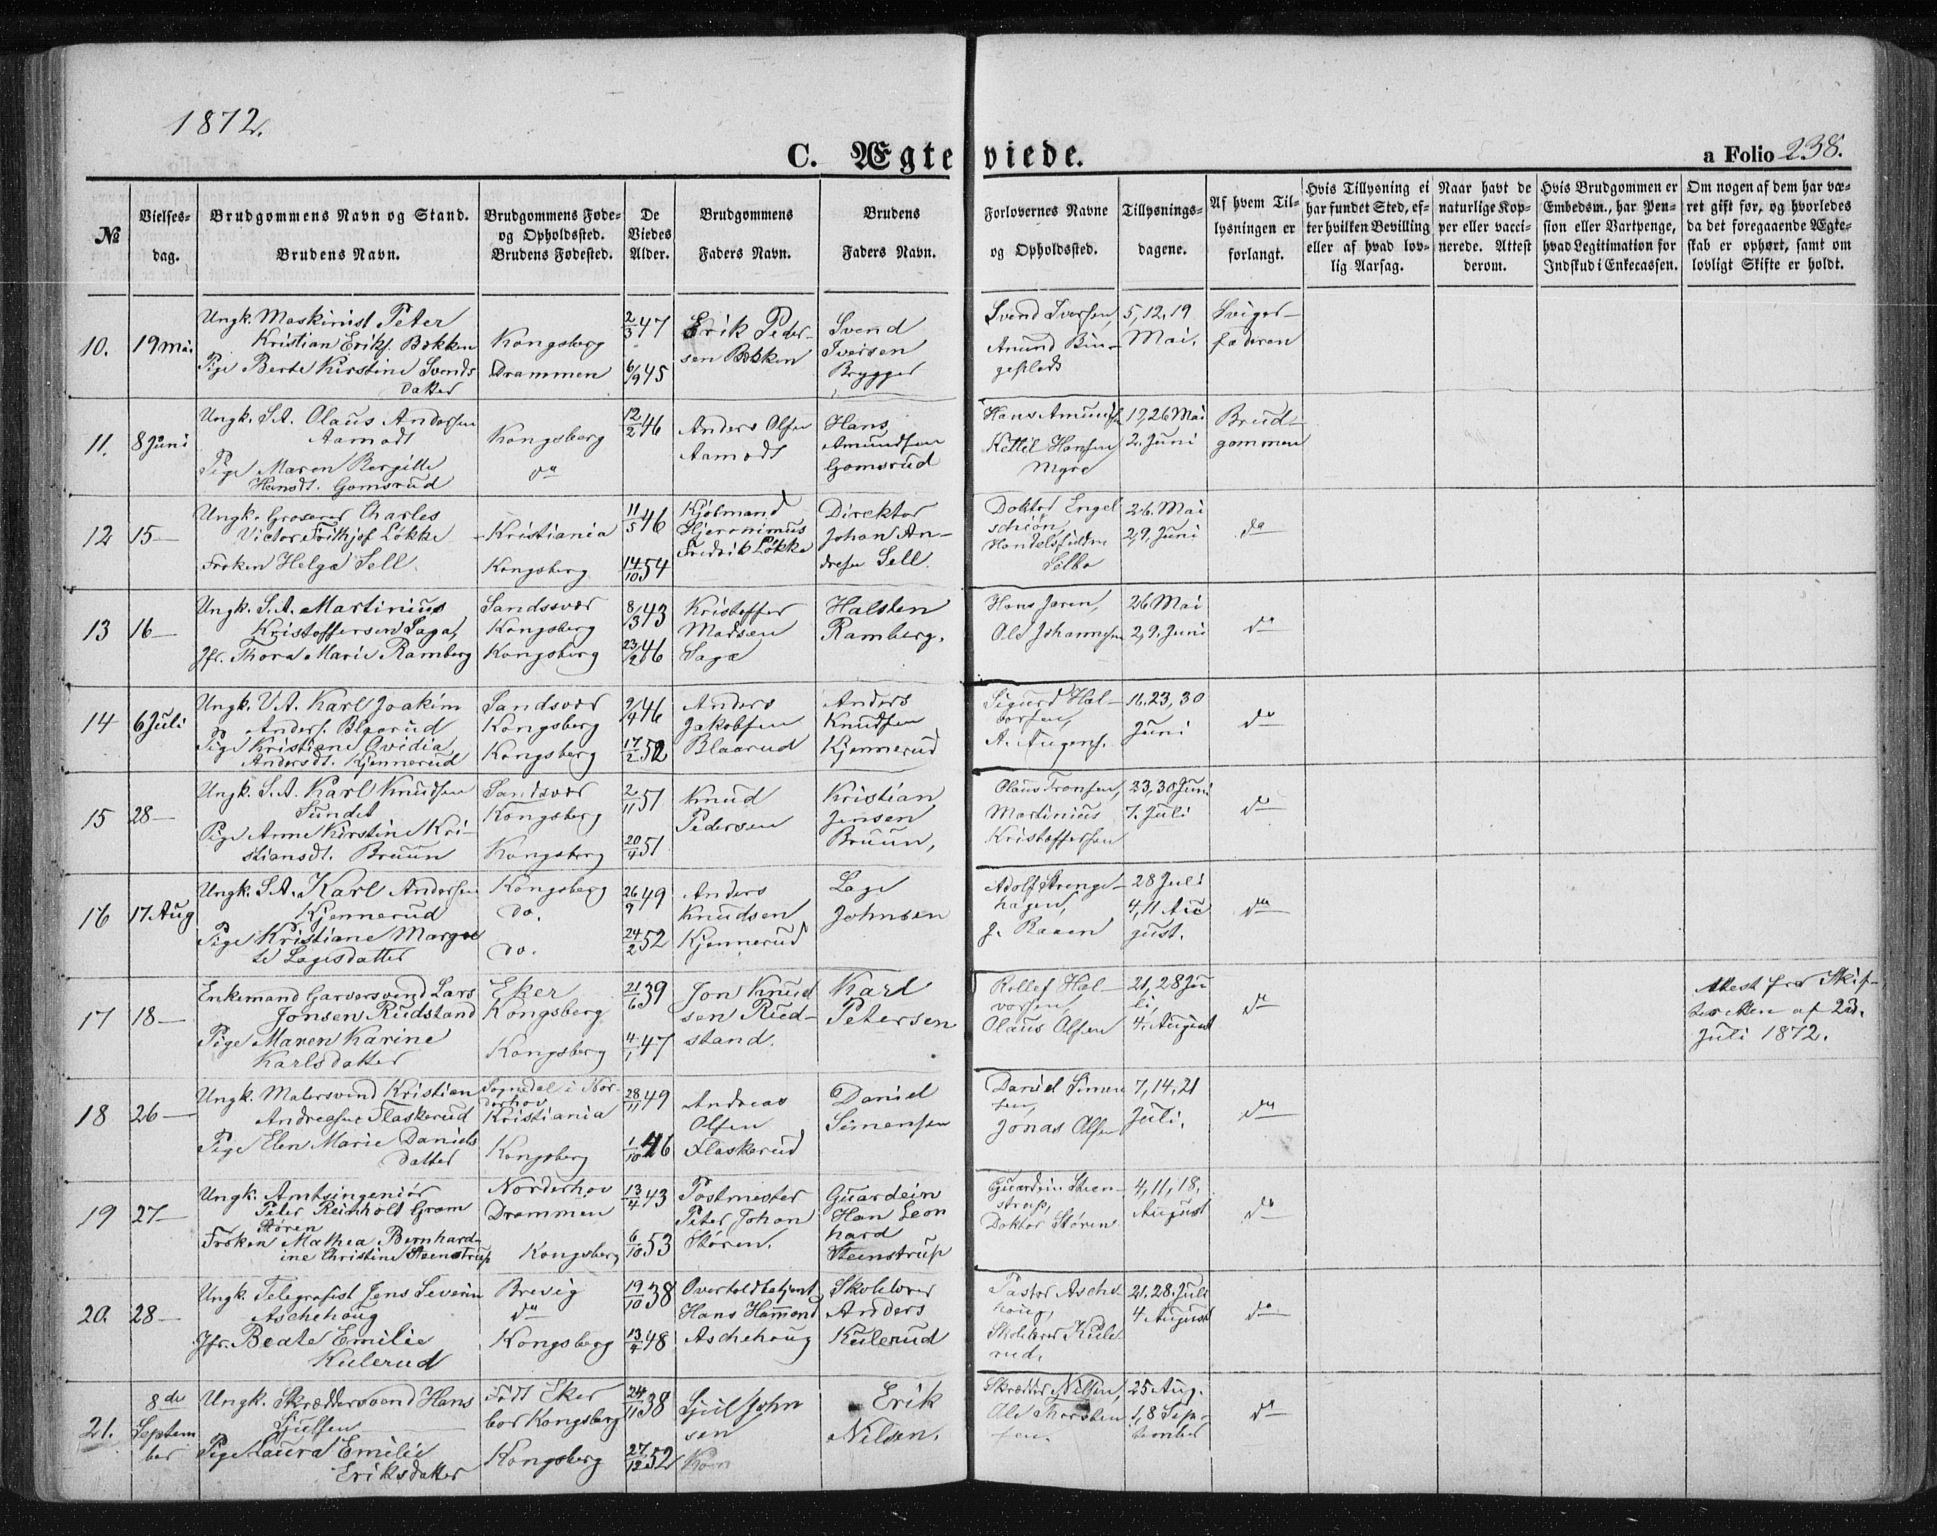 1872.
C. Ægteviede.
a Folio 238.
№
Vielses-
dag.
Brudgommens Navn og Stand.
Brudens Navn.
Brudgommens Føde-
og Opholdssted.
Brudens Fødested.
De
Viedes
Alder.
Brudgommens
Faders Navn.
Brudens
Faders Navn.
Forlovernes Navne
og Opholdssted.
Tillysnings-
dagene.
Af hvem Til-
lysningen er
forlangt.
Hvis Tillysning ei
har fundet Sted, ef-
ter hvilken Bevilling
eller af hvad lov-
lig Aarsag.
Naar havt de
naturlige Kop-
per eller vacci-
nerede. Attest
derom.
Hvis Brudgommen er
Embedsm., har Pen-
sion eller Vartpenge,
hvad Legitimation for
Indskud i Enkecassen.
Om nogen af dem har væ-
ret gift før, og hvorledes
da det foregaaende Ægte-
skab er ophørt, samt om
lovligt Skifte er holdt.
10. 19 Mai
Ungk. Maskinist Peter
Kristian Eriks. Bakken
Pige Berte Kirstine Svends
datter
Kongsberg
Drammen
2/3 47
6/9 45
Erik Peder-
sen Bakken
Svend
Iversen
Brygger
Svend Iversen,
Amund
5, 12, 19
Mai.
Sviger-
faderen
11. 8 Juni
Ungk. S.A. Olaus Andersen
Aamodt
Pige Maren Bergitte
Hansdt. Gomsrud
Kongsberg
do
12/2 46
Anders Olsen
Aamodt
Hans
Amundsen
Gomsrud
Kettil Hansen
Myre
2. Juni
Brud-
gommen
12 15 —
Ungk. Groserer Charles
Victor Frithjof Løkke
Frøken Helga Sell.
Kristiania
Kongsberg
11/5 46
14/10 54
Kjøbmand
Hjeronimus
Fredrik Løkke
Direktør
Johan An-
dresen Sell.
Doktor Engel
26 Mai
2, 9, Juni
do
13 16 —
Ungk. S.A. Martinius
Kristoffersen Saga,
Jfr. Thora Marie Ramberg
Sandsvær
Kongsberg
Kongsberg
8/3 43
23/2 46
Kristoffer
Madsen
Saga
Halsten
Ramberg.
Hans Jaren,
Ole Johannesen
26 Mai
2, 9, Juni
do
14 6 Juli
Ungk. V.A. Karl Joakim
Anders. Blaarud
Pige Kristiane Ovidia
Andersdt. Kjennerud
Sandsvær
Kongsberg
Kongsberg
2/4 46
17/2 52
Anders
Jakobsen
Blaarud
Anders
Knudsen
Kjennerud
Sigurd Hal-
vorsen,
16, 23, 30
Juni
do
15 28 —
Ungk. S.A. Karl Knudsen
Sundet
Pige Anne Kirstine Kri-
stiansdt. Bruun
Sandsvær
Kongsberg
Kongsberg
2/11 51
20/4 51
Knud
Pedersen
Kristian
Jensen
Bruun,
Olaus Fransen,
Martinius
Kristoffersen
23, 30 Juni
7. Juli
do
16 17 Aug
Ungk. S.A. Karl Andersen
Kjennerud
Pige Kristiane Margre
te Lagesdatter
Kongsberg
do.
do.
26/9 49
24/2 52
Anders
Knudsen
Kjennerud
Lage
Johnsen
Adolf Strenge-
hagen,
J. Raaen
28 Juli
4, 11 Au
gust.
do
17 18 —
Enkemand Garversvend Lars
Jonsen Rudstand
Pige Maren Karine
Karlsdatter
Eker
Kongsberg
Kongsberg
21/6 39
4/1 47
Jon Knud
sen Rud-
stand.
Karl
Petersen
Rollef Hal-
vorsen,
Olaus Olsen
21, 28 Ju
li,
4. August
do
Attest fra Skif-
teretten af 23.
Juli 1872.
18 26 —
Ungk. Malersvend Kristian
Andreasen Flaskerud
Pige Elen Marie Daniels
datter
Sogndal i Nor-
derhov
Kristiania
Kongsberg
28/11 49
1/10 46
Andreas
Olsen
Flaskerud
Daniel
Simensen
Daniel Simen
sen,
Jonas Olsen
7, 14, 21
Juli.
do
19 27 —
Ungk. Amtsingeniør
Peter Reinholt Gram
Støren
Frøken Mathea Bernhard-
ine Christine Steenstrup
Norderhov
Drammen
Kongsberg
13/4 43
6/10 53
Postmester
Peter Johan
Støren.
Guardein
Han Leon
hard
Steinstrup
Guardein Steen-
strup,
Doktor Støren
4, 11, 18,
August
do
20. 28 —
Ungk. Telegrafist Jens Severin
Aschehoug
Jfr. Beate Emilie
Kulerud
Brevig
do
Kongsberg
19/10 38
13/4 48
Overtoldbetjent
Hans Hammond
Aschehoug
Skolelærer
Anders
Kulerud
Pastor Asche
houg,
Skolelærer Kule
rud,
21, 28. Juli
4 August
do
21. 8de
Septem
ber
Ungk. Skræddersvend Hans
Sjulsen
Pige Laura Emilie
Eriksdatter
Født Eker
bor Kongsberg
Kongsberg
24/11 38
27/12 52
Sjul John
sen
Erik
Nilsen.
Skrædder Nilsen,
Ole Thorsten
sen.
25 Aug.
1, 8 Sep-
tember
do